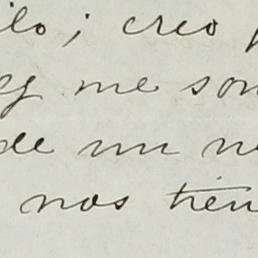 ilo; creo
me son
de un ne
nos tien